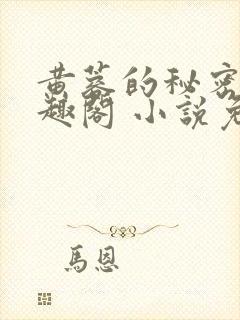 黄墓的秘密
趣閣 小說免
馬恩